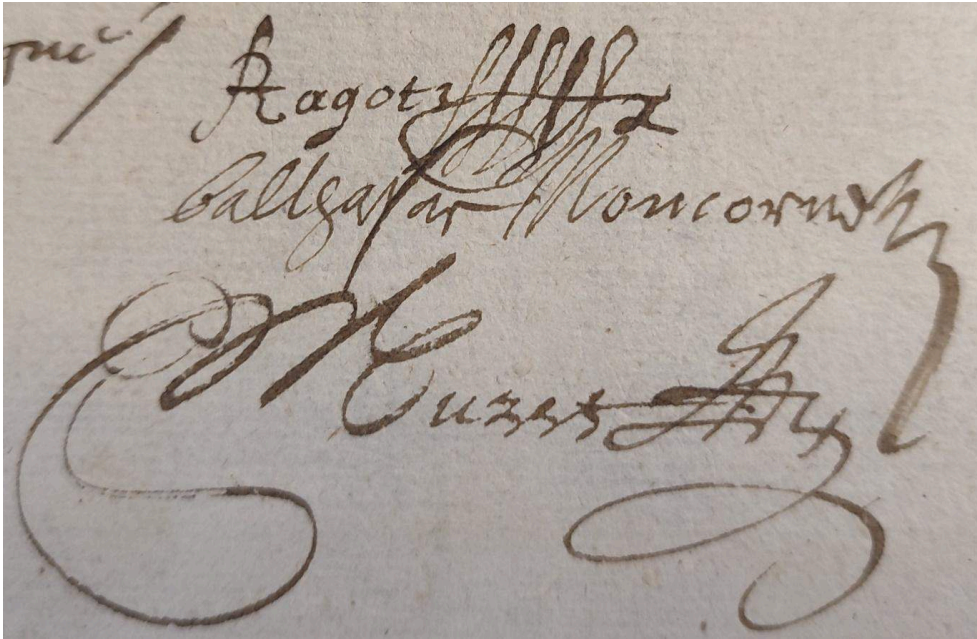 Ragot
balthasar Moncornet
Muzet